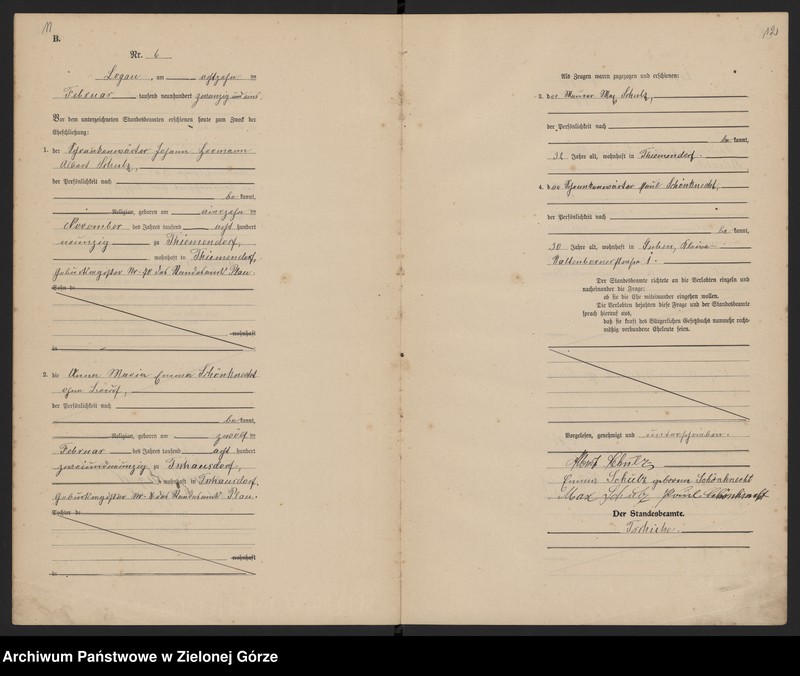 11
B.
Nr. 6
Logau, am achtzehn ten
Februar tausend neunhundert zwanzig und eins.
Vor dem unterzeichneten Standesbeamten erschienen heute zum Zweck der
Eheschließung:
1. der Schrankenwärter Johann Hermann
Albert Schulz,
der Persönlichkeit nach
be kannt,
Religion, geboren am vierzehn ten
November des Jahres tausend acht hundert
neunzig zu Thiemendorf,
wohnhaft in Thiemendorf,
Geburtsregister Nr. des Standesamts Plau.
Sohn de
wohnhaft
in
2. die Anna Maria Emma Schönknecht
ohne Beruf,
der Persönlichkeit nach
be kannt,
Religion, geboren am zwölf ten
Februar des Jahres tausend acht hundert
zweiundneunzig zu
wohnhaft in
Geburtsregister Nr. des Standesamts Plau.
Tochter de
wohnhaft
in
121
Als Zeugen waren zugezogen und erschienen:
3. der Maurer Max Schulz,
der Persönlichkeit nach
be kannt,
32 Jahre alt, wohnhaft in Thiemendorf.
4. der Schrankenwärter Paul Schönknecht,
der Persönlichkeit nach
be kannt,
30 Jahre alt, wohnhaft in Guben, Kleine
Kaltenbornerstraße 1.
Der Standesbeamte richtete an die Verlobten einzeln und
nacheinander die Frage:
ob sie die Ehe miteinander eingehen wollen.
Die Verlobten bejahten diese Frage und der Standesbeamte
sprach hierauf aus,
daß sie kraft des Bürgerlichen Gesetzbuchs nunmehr recht-
mäßig verbundene Eheleute seien.
Vorgelesen, genehmigt und unterschrieben.
Albert Schulz
Emma Schulz geborene Schönknecht
Max Schulz Paul Schönknecht
Der Standesbeamte.
Archiwum Państwowe w Zielonej Górze